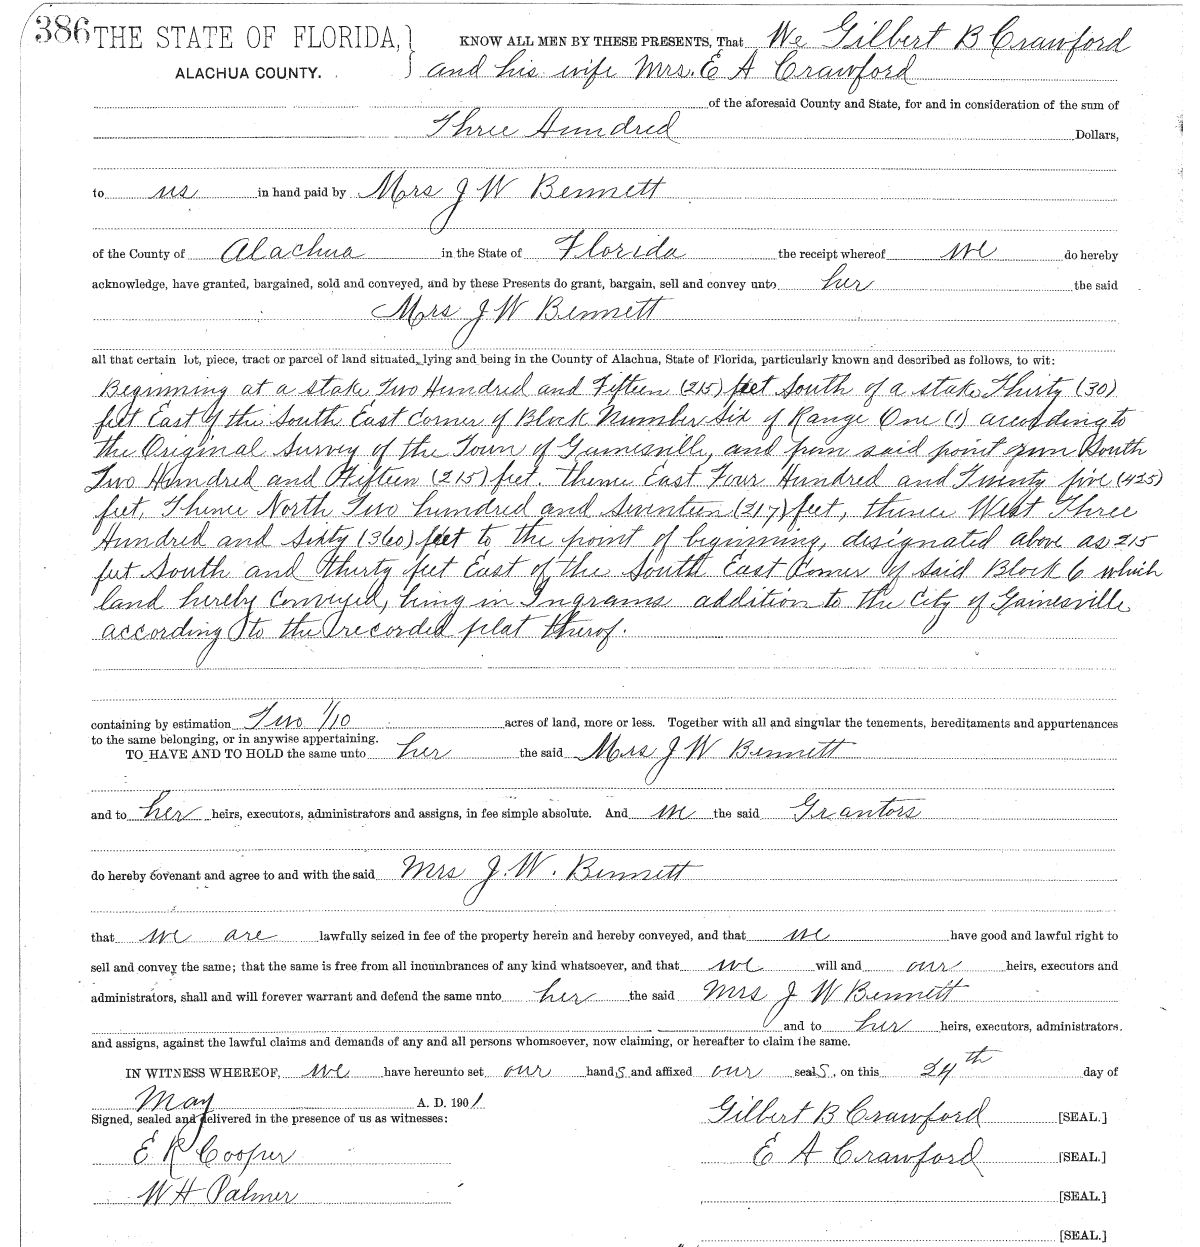 386 THE STATE OF FLORIDA, } KNOW ALL MEN BY THESE PRESENTS, That We Gilbert B Crawford
ALACHUA COUNTY. } and his wife Mrs. E A Crawford
of the aforesaid County and State, for and in consideration of the sum of
Three Hundred Dollars,
to us in hand paid by Mrs J W Bennett
of the County of Alachua in the State of Florida the receipt whereof we do hereby
acknowledge, have granted, bargained, sold and conveyed, and by these Presents do grant, bargain, sell and convey unto her the said
Mrs J W Bennett
all that certain lot, piece, tract or parcel of land situated, lying and being in the County of Alachua, State of Florida, particularly known and described as follows, to wit:
Beginning at a stake Two Hundred and Fifteen (215) feet South of a stake Thirty (30)
feet East of the South East Corner of Block Number Six of Range One (1) according to
the Original Survey of the Town of Gainesville, and from said point run South
Two Hundred and Fifteen (215) feet. thence East Four Hundred and Twenty five (425)
feet, Thence North Two hundred and seventeen (217) feet, thence West Three
Hundred and sixty (360) feet to the point of beginning, designated above as 215
feet South and thirty feet East of the South East Corner of said Block 6 which
land hereby conveyed, being in Ingrams addition to the City of Gainesville
according to the recorded plat therof.
containing by estimation Two 1/10 acres of land, more or less. Together with all and singular the tenements, hereditaments and appurtenances
to the same belonging, or in anywise appertaining.
TO HAVE AND TO HOLD the same unto her the said Mrs J W Bennett
and to her heirs, executors, administrators and assigns, in fee simple absolute. And we the said Grantors
do hereby covenant and agree to and with the said Mrs J. W. Bennett
that we are lawfully seized in fee of the property herein and hereby conveyed, and that we have good and lawful right to
sell and convey the same; that the same is free from all incumbrances of any kind whatsoever, and that we will and our heirs, executors and
administrators, shall and will forever warrant and defend the same unto her the said Mrs J W Bennett
and to her heirs, executors, administrators.
and assigns, against the lawful claims and demands of any and all persons whomsoever, now claiming, or hereafter to claim the same.
IN WITNESS WHEREOF, we have hereunto set our hands and affixed our seals, on this 24th day of
May A. D. 1901
Signed, sealed and delivered in the presence of us as witnesses: Gilbert B Crawford [SEAL.]
E R Cooper E A Crawford [SEAL.]
W H Palmer [SEAL.]
[SEAL.]